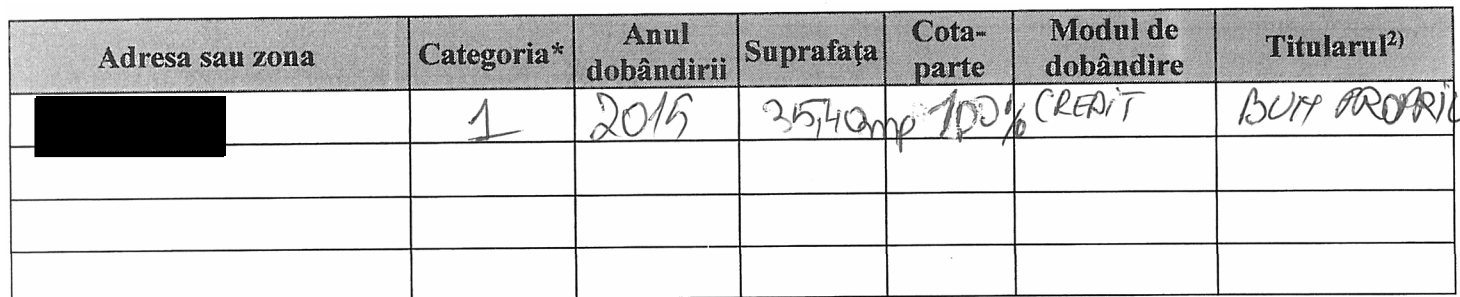 Adresa sau zona Categoria* Anul dobândirii Suprafața Cota-parte Modul de dobândire Titularul²⁾
1 2015 35,40mp 100% CREDIT BUN PROPRIU